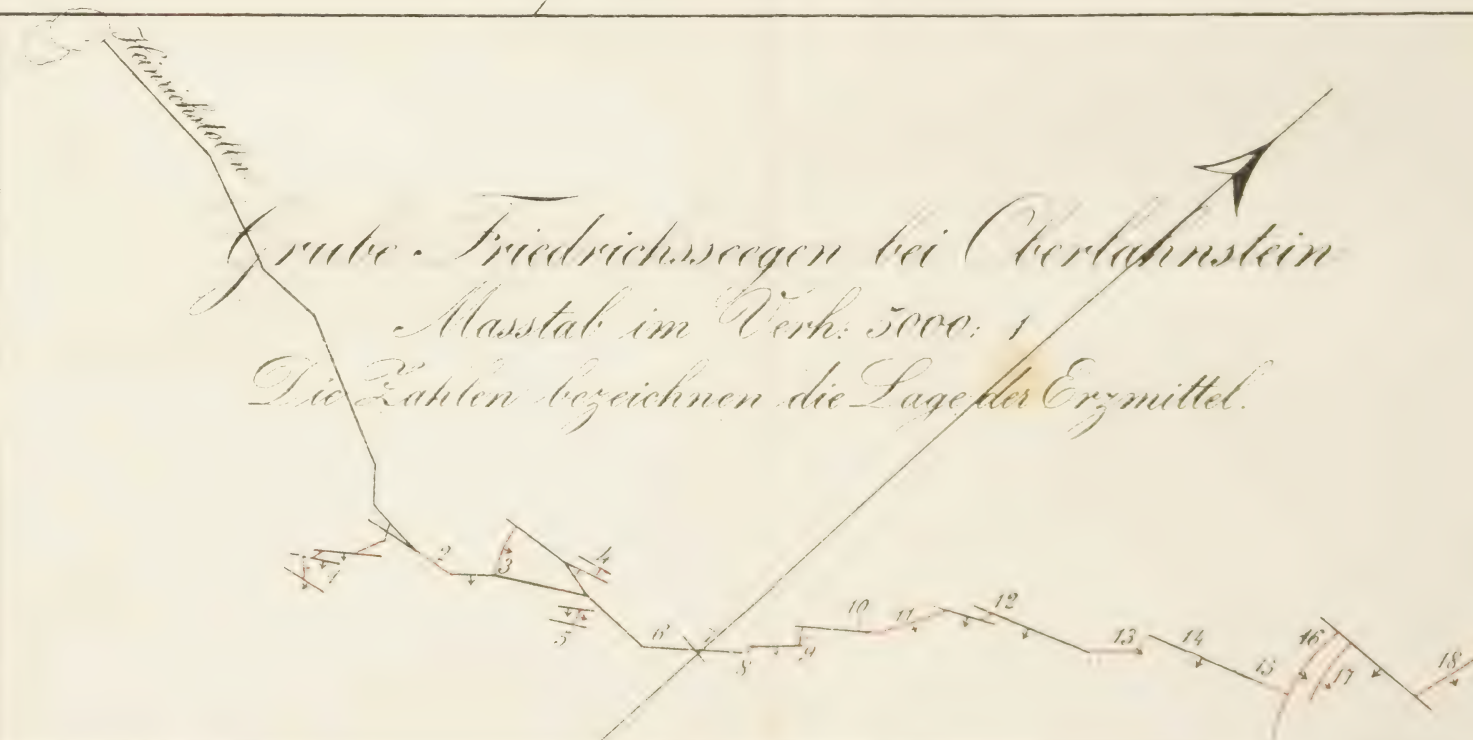 Heinrichstollen
Grube Friedrichsseegen bei Oberlahnstein
Masstab im Verh: 5000: 1
Die Zahlen bezeichnen die Lage der Erzmittel.
1
2
3
4
5
6
7
8
9
10
11
12
13
14
15
16
17
18